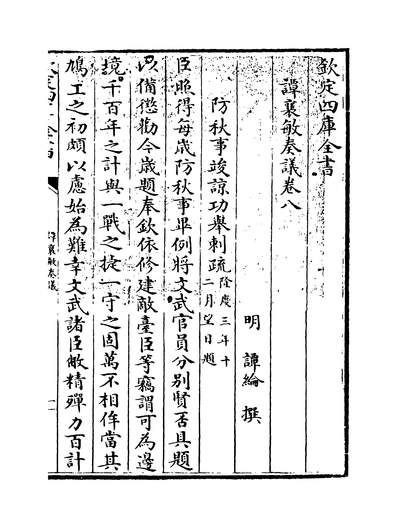 欽定四庫全書
譚襄敏奏議卷八
明 譚綸 撰
防秋事竣諒功舉刺疏隆慶三年十二月望日題
臣照得每歲防秋事畢例將文武官員分别賢否具題
以備懲勸今歲題奉欽依修建敵臺臣等竊謂可為邊
境千百年之計與一戰之捷一守之固萬不相侔當其
鳩工之初頗以慮始為難幸文武諸臣敝精殫力百計
欽定四庫全書
譚襄敏奏議
一